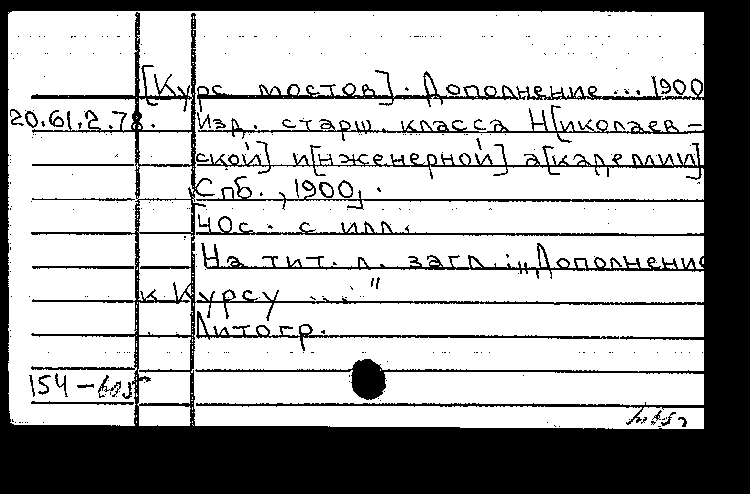 [Курс мостов]. Дополнение ... 1900
20.61.2.78. Изд. старш. класса Н[иколаев-
ской] и[нженерной] а[кадемии]
Спб., 1900].
40с. с илл.
На тит. л. загл.: "Дополнение
к Курсу ...."
Литогр.
154-605